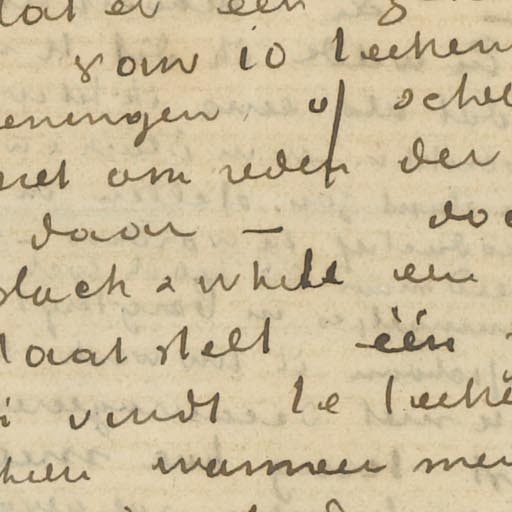 dat er een
van 10 teeken
eningen of schet
niet om reden der
daar — doo
black & white een
laat stelt één
i vindt te teeke
wanneer men